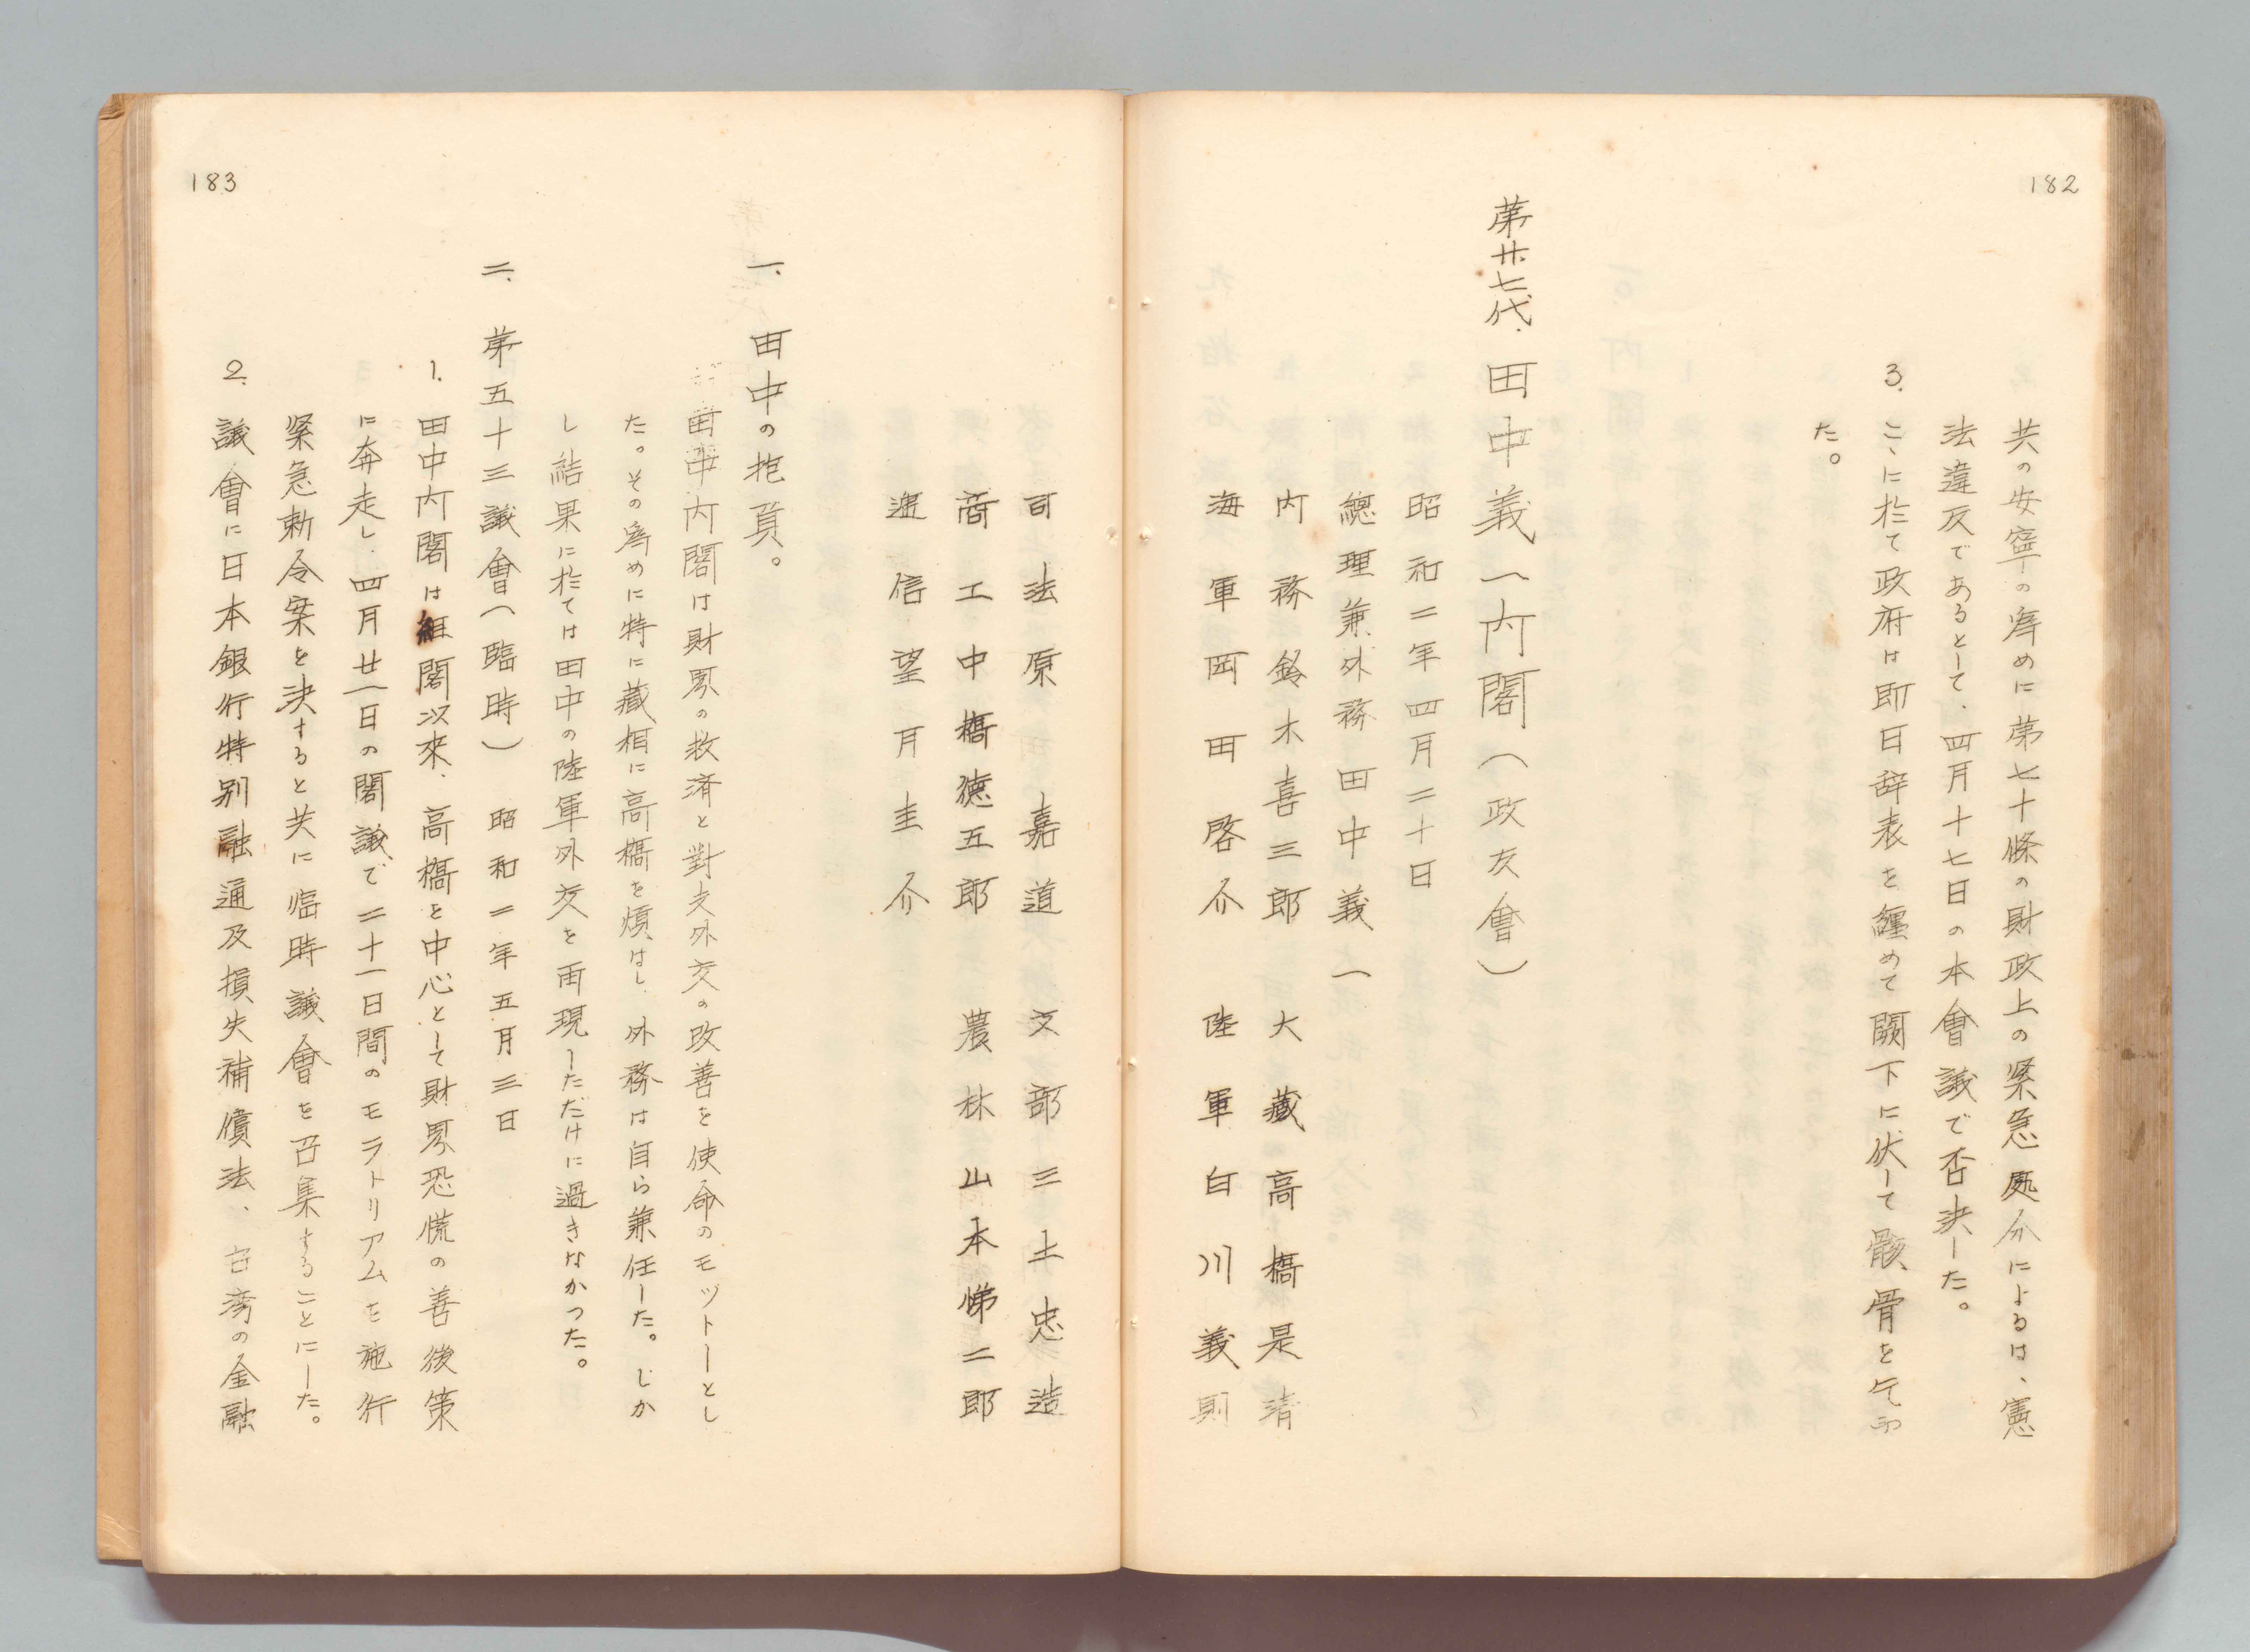 182
共の安寧の為めに第七十條の財政上の緊急処分によるは、憲
法違反であるとして、四月十七日の本會議で否決した。
3. こゝに於て政府は即日辞表を纏めて闕下に伏して骸骨を乞ふ
た。
第廿七代.田中義一内閣(政友會)
昭和二年四月二十日
總理兼外務 田中義一
内務 鈴木喜三郎 大藏 高橋是清
海軍 岡田啓介 陸軍 白川義則
司法 原嘉道 文部 三土忠造
商工 中橋徳五郎 農林 山本悌二郎
逓信 望月圭介
183
一. 田中の抱負。
田中内閣は財界の救済と對支外交の改善を使命のモットーとし
た。その為めに特に藏相に高橋を煩はし、外務は自ら兼任した。しか
し結果に於ては田中の陸軍外交を再現しただけに過きなかつた。
二. 第五十三議會(臨時) 昭和二年五月三日
1. 田中内閣は組閣以來、高橋を中心として財界恐慌の善後策
に奔走し.四月廿一日の閣議で二十一日間のモラトリアムを施行
緊急勅令案を決すると共に臨時議會を召集することにした。
2. 議會に日本銀行特別融通及損失補償法、台湾の金融